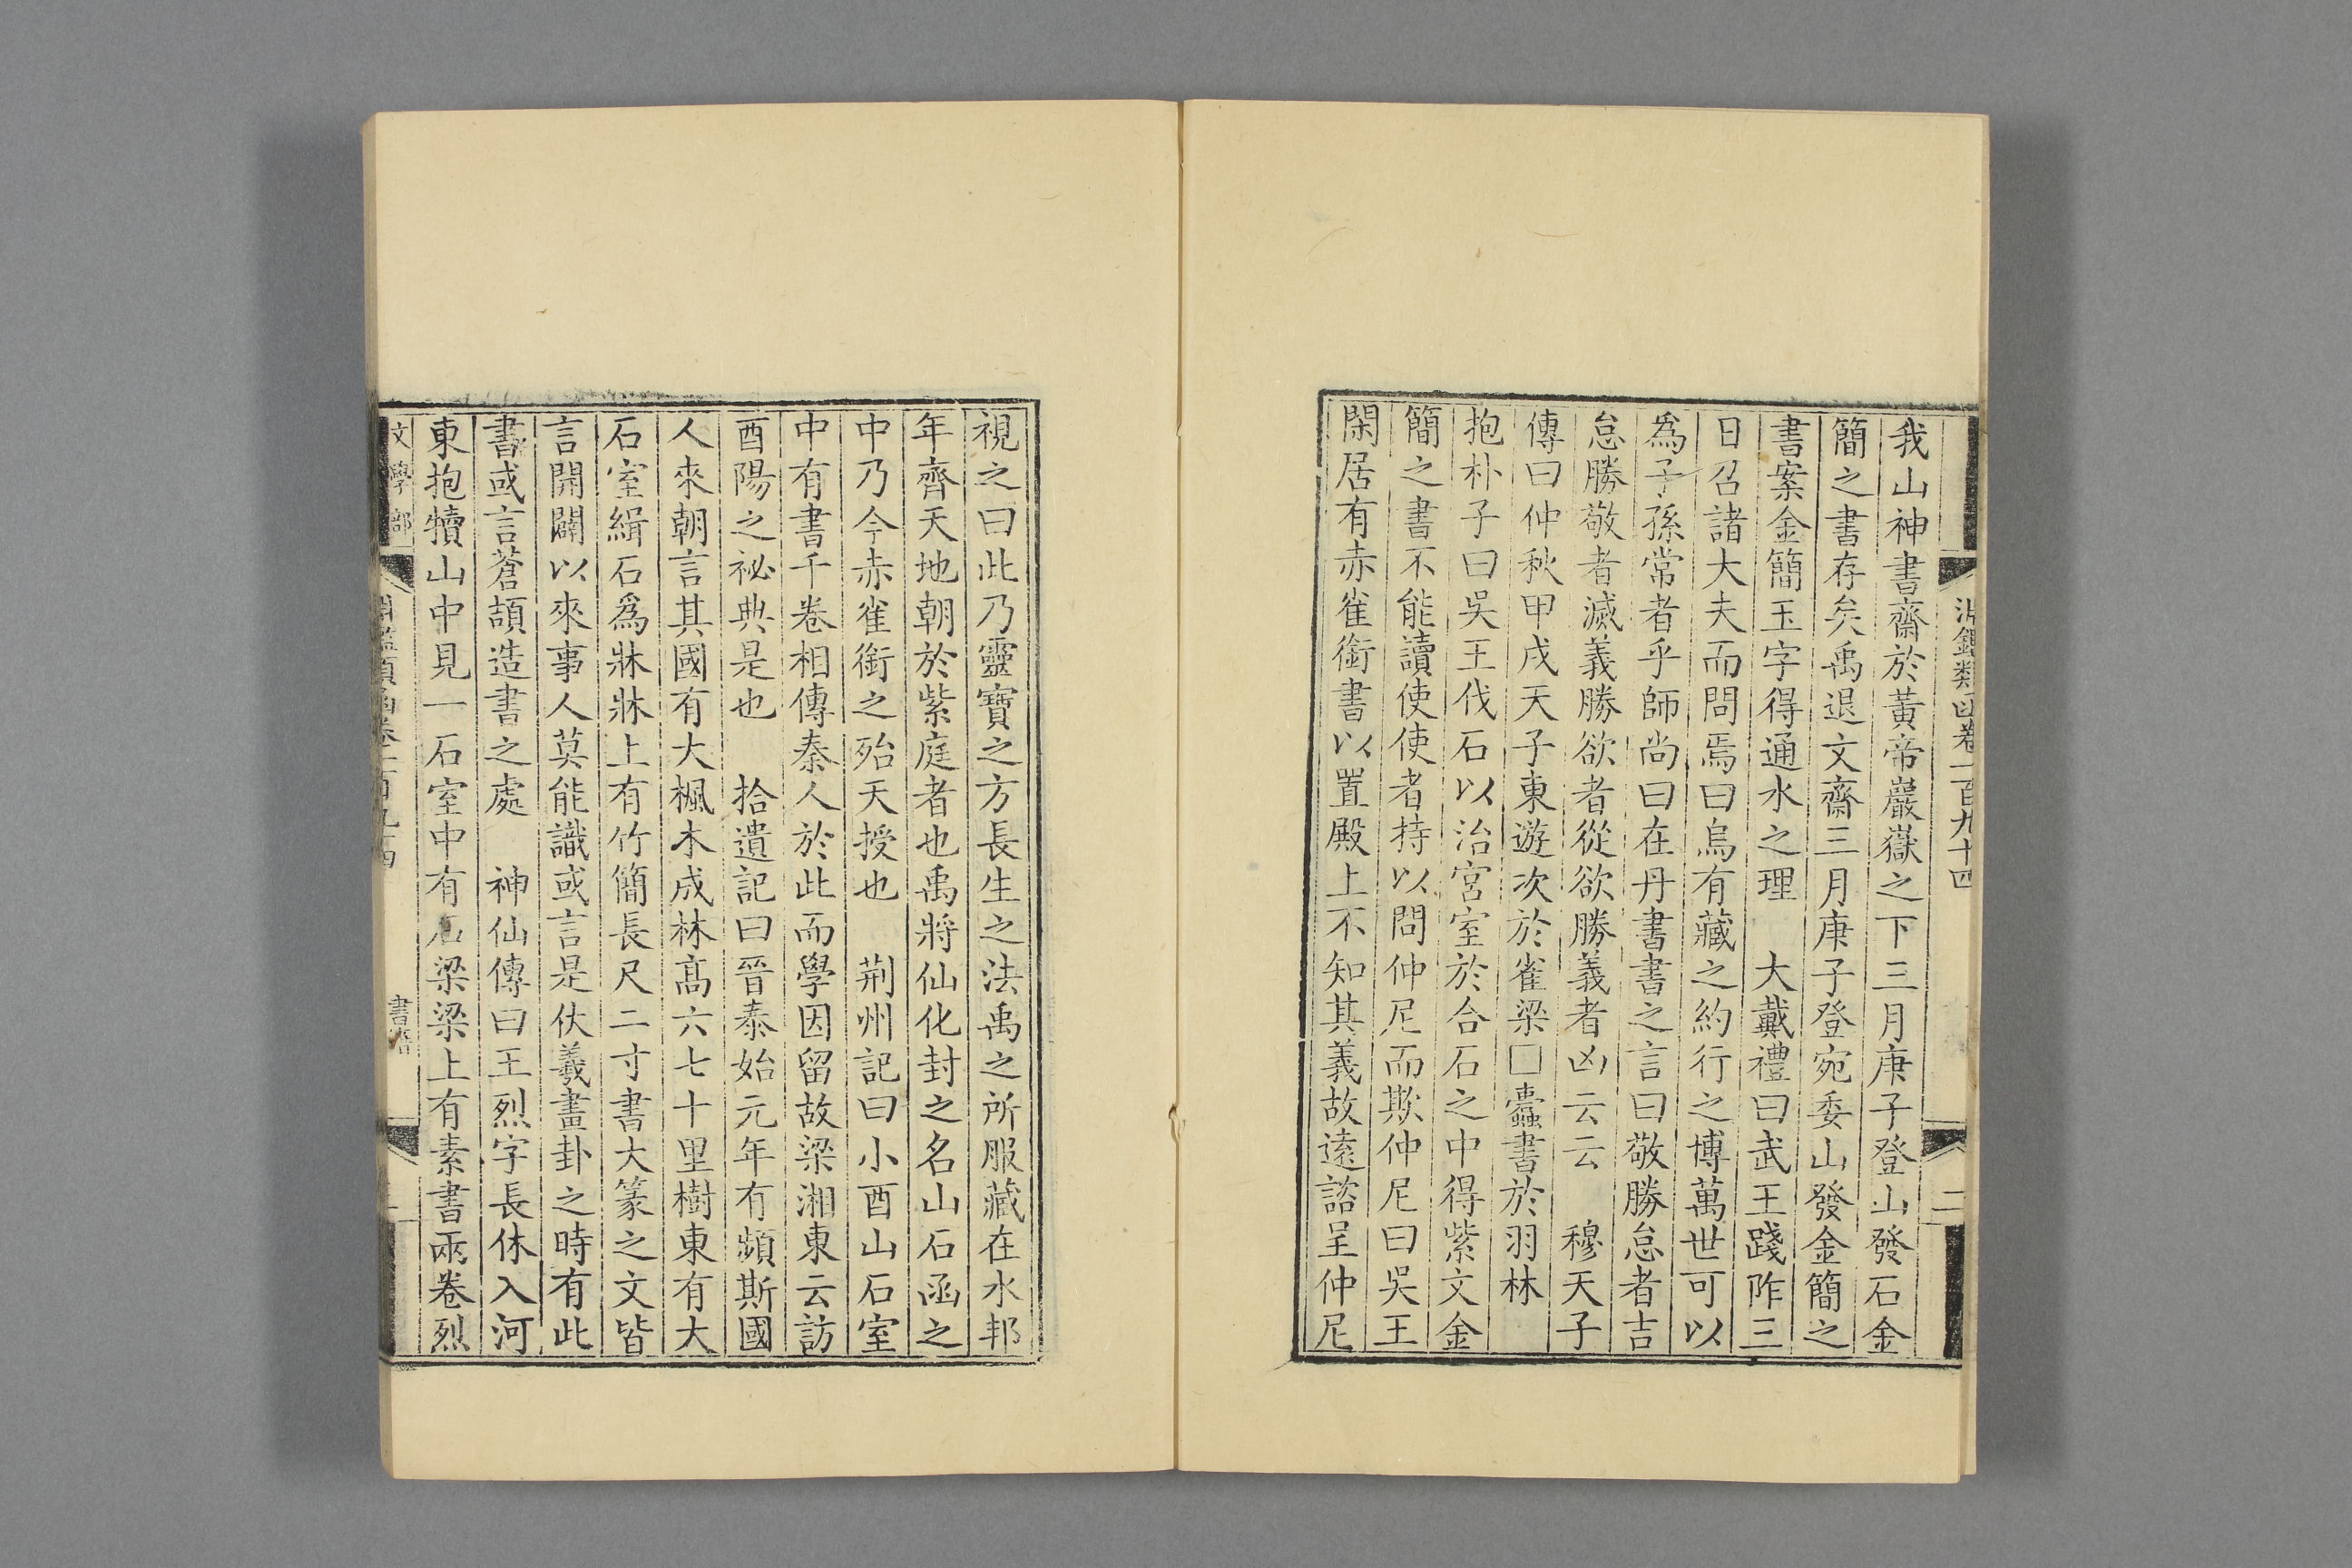 淵鑑類函卷一百九十四
二
我山神書齋於黃帝巖嶽之下三月庚子登山發石金
簡之書存矣禹退文齋三月庚子登宛委山發金簡之
書案金簡玉字得通水之理　大戴禮曰武王踐阼三
日召諸大夫而問焉曰烏有藏之約行之博萬世可以
爲子孫常者乎師尚曰在丹書書之言曰敬勝怠者吉
怠勝敬者滅義勝欲者從欲勝義者凶云云　穆天子
傳曰仲秋甲戌天子東遊次於雀梁□蠹書於羽林
抱朴子曰吳王伐石以治宮室於合石之中得紫文金
簡之書不能讀使使者持以問仲尼而欺仲尼曰吳王
閑居有赤雀銜書以置殿上不知其義故遠諮呈仲尼
視之曰此乃靈寶之方長生之法禹之所服藏在水邦
年齊天地朝於紫庭者也禹將仙化封之名山石函之
中乃今赤雀銜之殆天授也　荆州記曰小酉山石室
中有書千卷相傳秦人於此而學因留故梁湘東云訪
酉陽之祕典是也　拾遺記曰晉泰始元年有頻斯國
人來朝言其國有大楓木成林高六七十里樹東有大
石室緝石爲牀牀上有竹簡長尺二寸書大篆之文皆
言開闢以來事人莫能識或言是伏羲畫卦之時有此
書或言蒼頡造書之處　神仙傳曰王烈字長休入河
東抱犢山中見一石室中有石梁梁上有素書兩卷烈
文學部
書籍